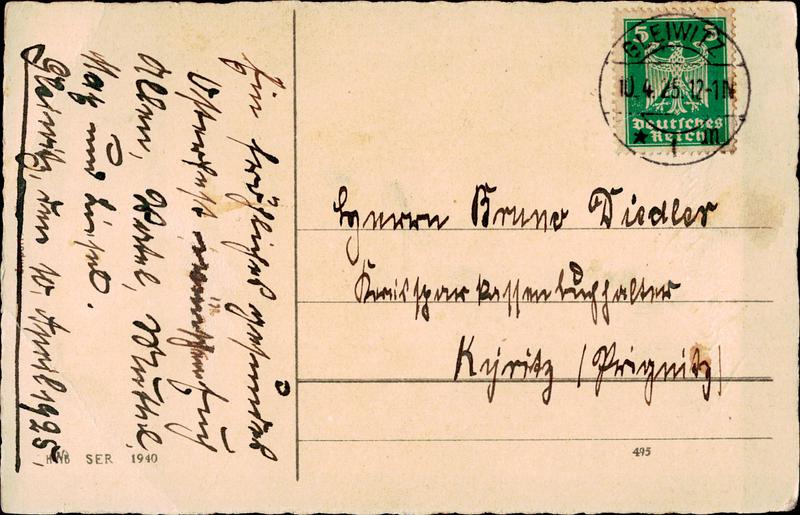 Ein fröhliches gesundes
Osterfest wünscht Euch
Allen,
Max und Liesel.
Gleiwitz, den 10. April 1925.
GLEIWITZ
10.4.25.12-1N
5 5
Deutsches
Reich
* 1 m
Herrn Bruno Diedler
Kreissparkassenbuchhalter
Kyritz (Prignitz)
HWB SER 1940
495